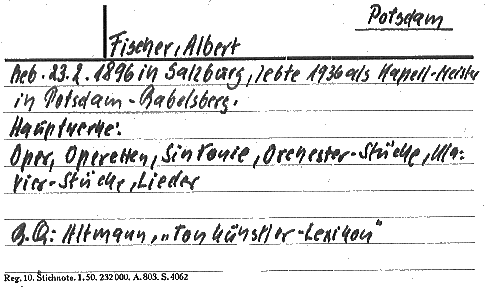 Potsdam
Fischer, Albert
Geb. 23.2.1896 in Salzburg, lebte 1936 als Kapell-Meister
in Potsdam-Babelsberg.
Hauptwerke:
Oper, Operetten, Sinfonie, Orchester-Stücke, Kla-
vier-Stücke, Lieder
B.Q.: Altmann, „Tonkünstler-Lexikon"
Reg. 10. Stichnote. 1. 50. 232 000. A. 803. S. 4062